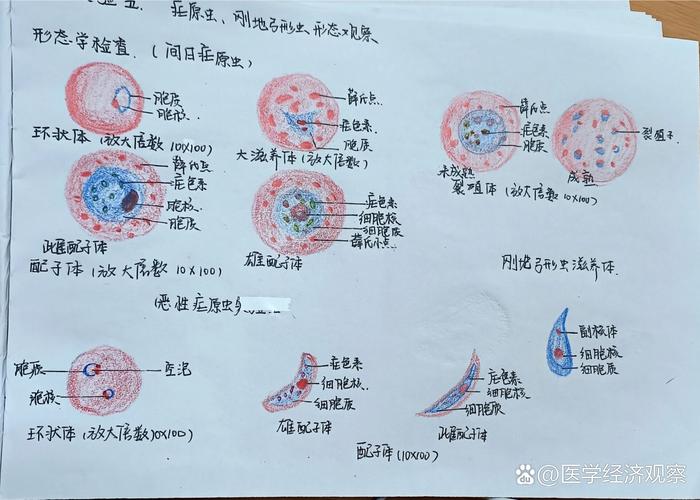 五. 疟原虫、刚地弓形虫形态观察
形态学检查. (间日疟原虫)
胞质
胞核
环状体 (放大倍数 10X100)
薛氏点
疟色素
胞质
大滋养体 (放大倍数)
薛氏点
疟色素
胞质
未成熟
裂殖子
成熟
裂殖体 (放大倍数 10X100)
薛氏点
疟色素
胞核
胞质
雌配子体
疟色素
细胞核
细胞质
薛氏小点
雄配子体
配子体 (放大倍数 10X100)
刚地弓形虫滋养体.
恶性疟原虫
副核体
细胞核
细胞质
胞质
空泡
胞核
环状体 (放大倍数10X100)
疟色素
细胞核
细胞质
雄配子体
疟色素
细胞核
细胞质
雌配子体
配子体 (10X100)
Bai du 百科 @医学经济观察